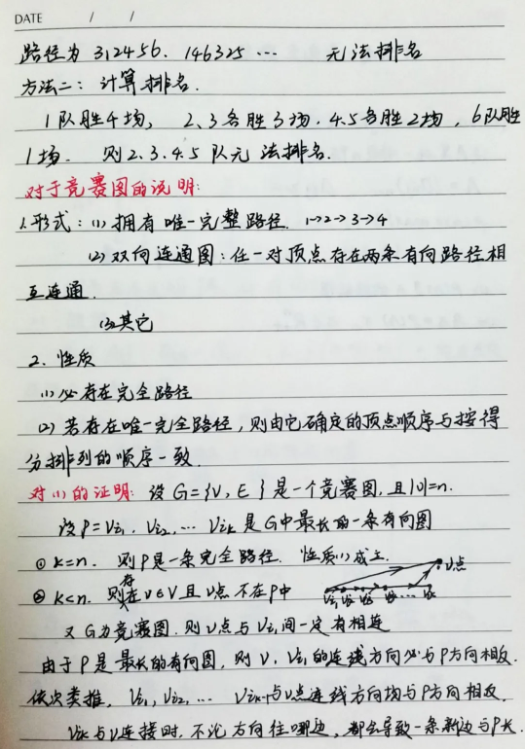 DATE / /
路径为 312456. 146325 … 无法排名
方法二: 计算排名.
1队胜4场, 2、3各胜3场. 4.5各胜2场, 6队胜
1场. 则2.3.4.5 队无法排名.
对于竞赛图的说明:
1.形式: (1) 拥有唯一完整路径. 1→2→3→4
(2) 双向连通图: 任一对顶点存在两条有向路径相
互连通.
(3)其它
2. 性质
(1) 必存在完全路径
(2) 若存在唯一完全路径, 则由它确定的顶点顺序与按得
分排列的顺序一致.
对(1)的证明: 设G={V, E}是一个竞赛图, 且|V|=n.
设P=Vi1. Vi2, … Vik 是G中最长的一条有向图
① k=n. 则P是一条完全路径. 性质(1)成立.
② k<n. 则存在v∈V且v点不在P中
v点
Vi1 Vi2 Vi3 … Vik
又G为竞赛图. 则v点与Vi1间一定有相连
由于P是最长的有向图, 则V. Vi1的连线方向必与P方向相反.
依次类推, Vi1, Vi2, … Vik-1与v点连线方向均与P方向相反.
Vik与v连接时, 不论方向往哪边, 都会导致一条新边与P长